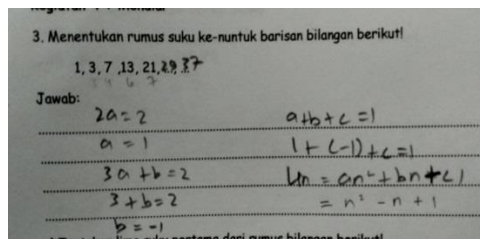 3. Menentukan rumus suku ke-nuntuk barisan bilangan berikut!
1, 3, 7 ,13, 21, 29, 37
Jawab:
2a = 2
a = 1
3a + b = 2
3 + b = 2
b = -1
a+b+c = 1
1 + (-1) + c = 1
Un = an² + bn + c
= n² - n + 1